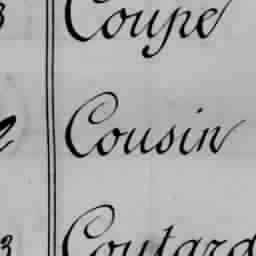 3 Coupé
Cousin
3 Coutard